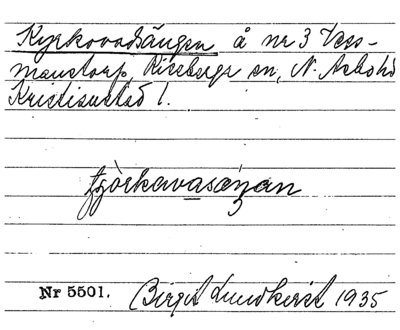 Kyrkovadsängen å nr 3 Väs-
manstorp, Riseberga sn, N. Åsbo hd
Kristianstad l.
Nr 5501. Birgit Lundkvist 1935